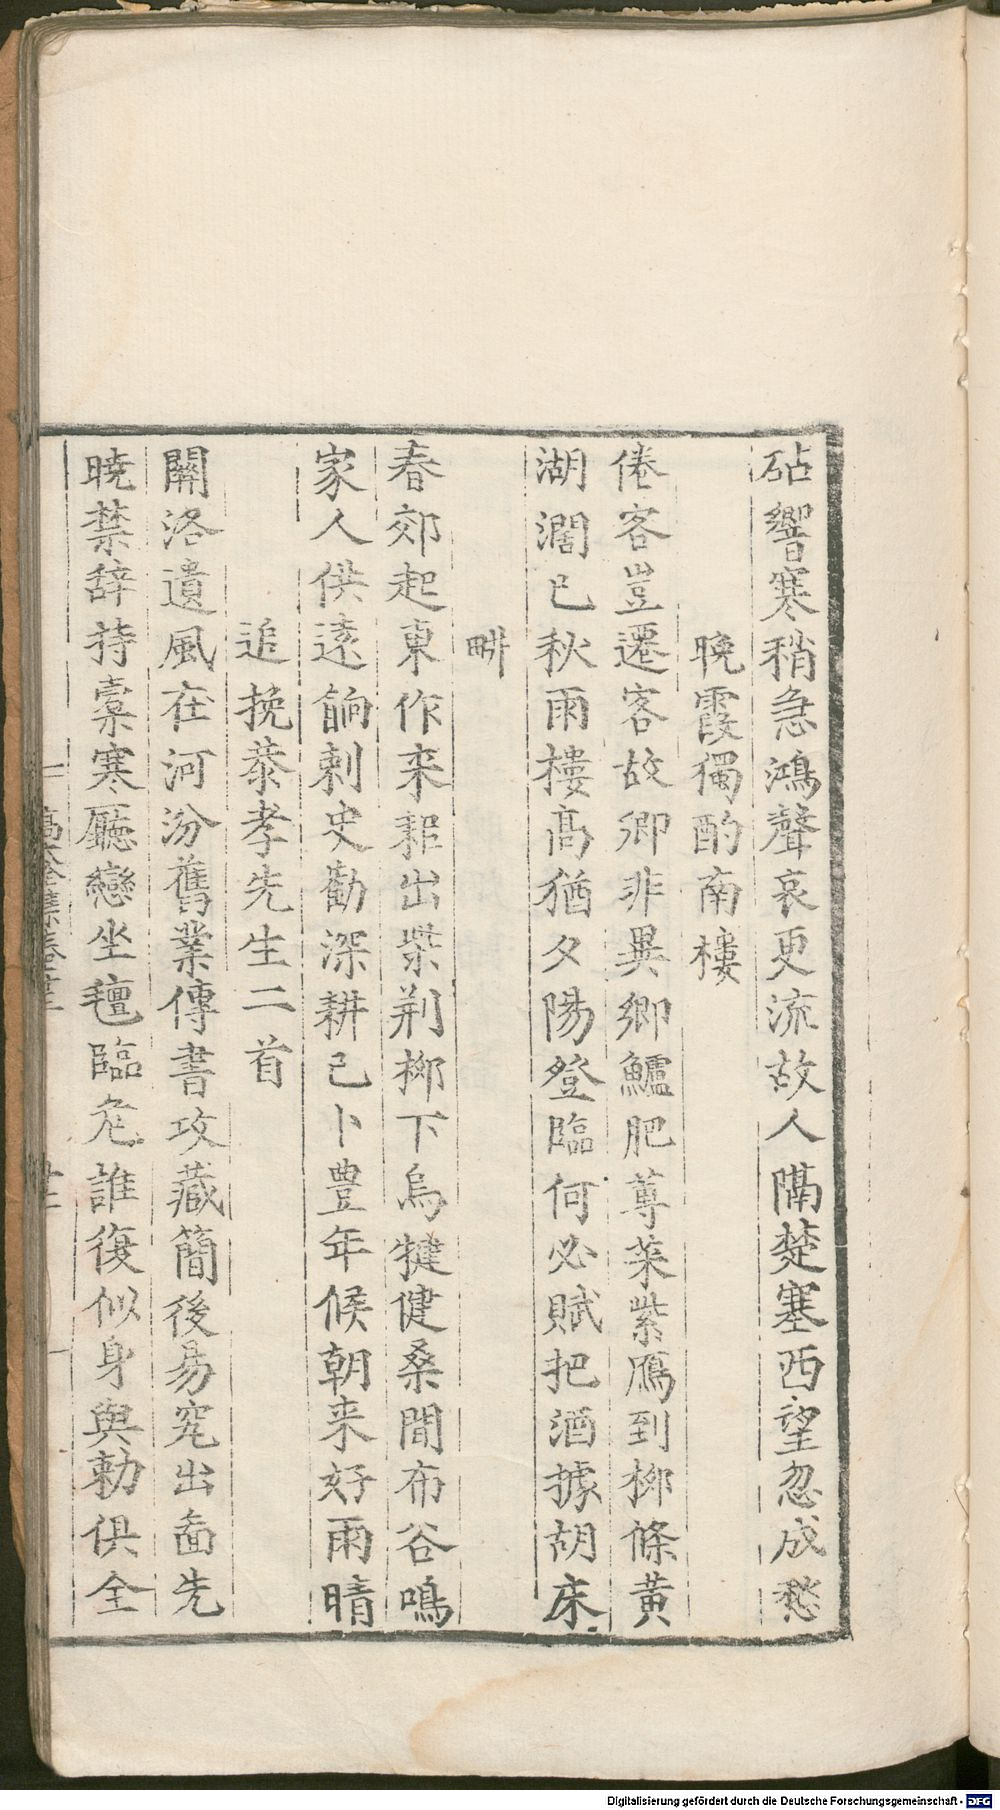 砧響寒稍急鴻聲哀更流故人隔楚塞西望忽成愁
晚霞獨酌南樓
倦客豈遷客故鄉非異鄉鱸肥蓴菜紫鴈到柳條黃
湖濶已秋雨樓髙猶夕陽登臨何必賦把酒據胡床
畊
春郊起東作来耜出柴荆桺下烏犍健桑間布谷鳴
家人供逺餉刺史勸深耕已卜豊年候朝来好雨晴
追挽恭孝先生二首
關洛遺風在河汾舊業傳書攻藏簡後易究出啚先
曉禁辞持橐寒廳戀坐氊臨危誰復似身與勅俱全
髙太全集卷
Digitalisierung gefördert durch die Deutsche Forschungsgemeinschaft - DFG